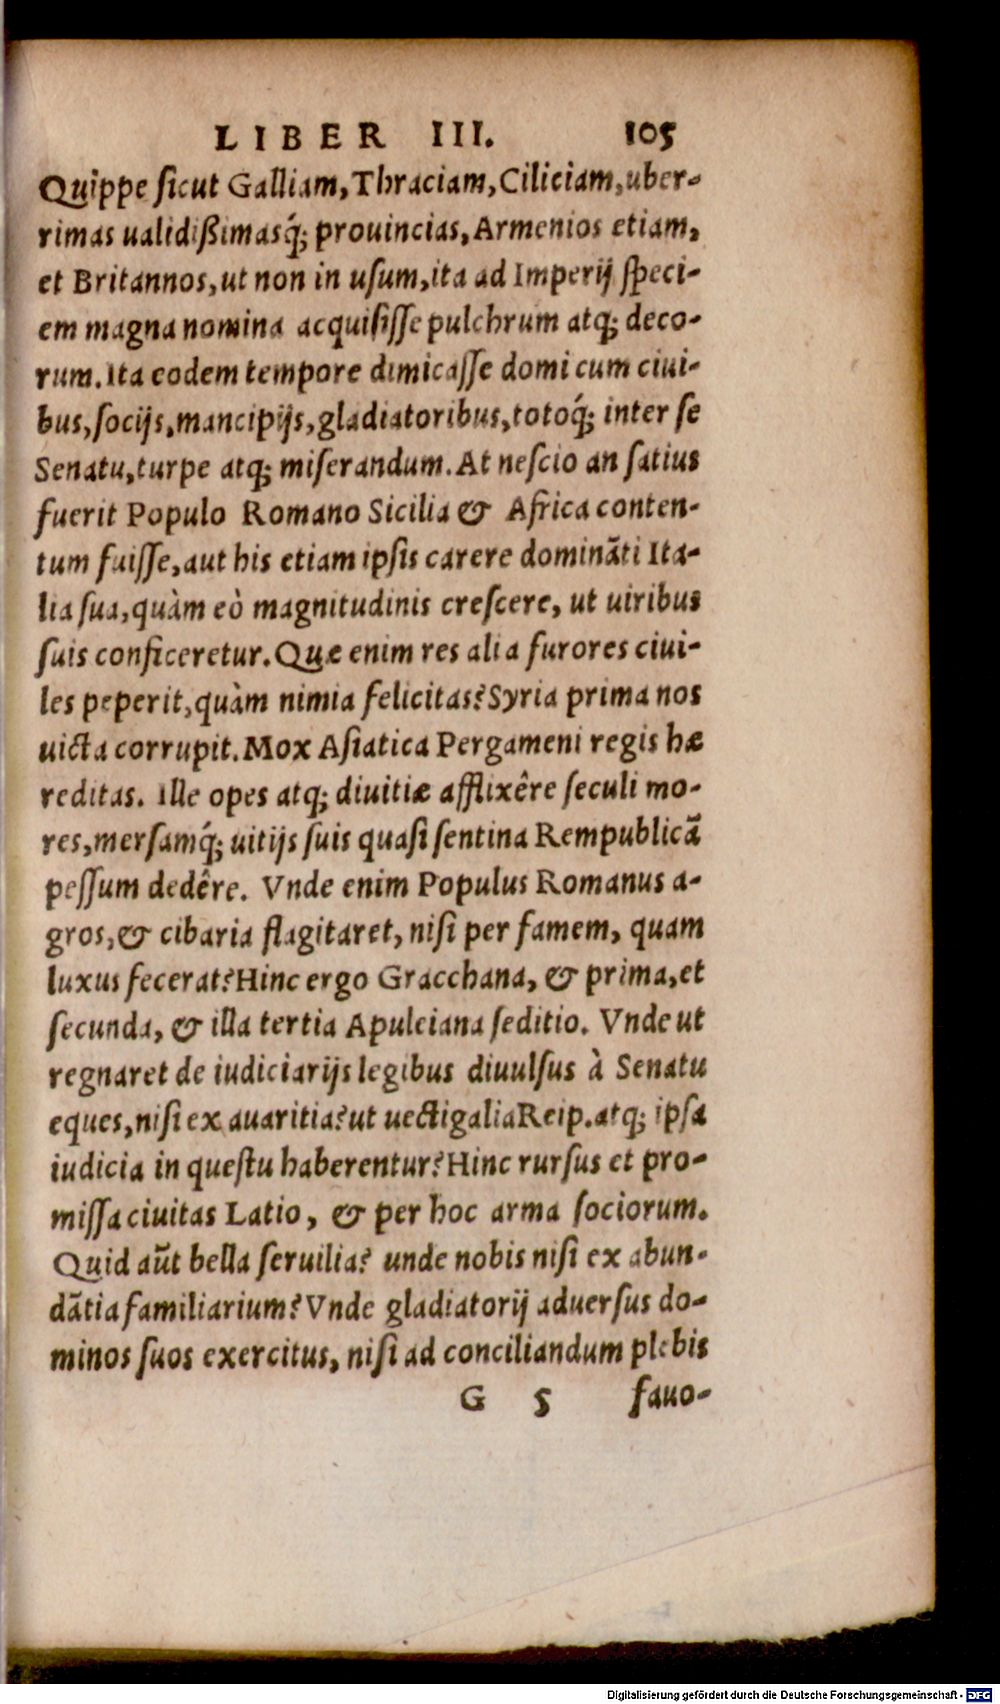 LIBER III. 105
Quippe ſicut Galliam, Thraciam, Ciliciam, uber-
rimas ualidißimasq́; prouincias, Armenios etiam,
et Britannos, ut non in uſum, ita ad Imperij ſpeci-
em magna nomina acquiſiſſe pulchrum atq; deco-
rum. Ita eodem tempore dimicaſſe domi cum ciui-
bus, ſocijs, mancipijs, gladiatoribus, totoq́; inter ſe
Senatu, turpe atq; miſerandum. At neſcio an ſatius
fuerit Populo Romano Sicilia & Africa conten-
tum fuiſſe, aut his etiam ipſis carere dominãti Ita-
lia ſua, quàm eò magnitudinis creſcere, ut uiribus
ſuis conficeretur. Quæ enim res alia furores ciui-
les peperit, quàm nimia felicitas? Syria prima nos
uicta corrupit. Mox Aſiatica Pergameni regis hæ
reditas. Ille opes atq; diuitiæ afflixêre ſeculi mo-
res, merſamq́; uitijs ſuis quaſi ſentina Rempublicã
peſſum dedêre. Vnde enim Populus Romanus a-
gros, & cibaria flagitaret, niſi per famem, quam
luxus fecerat? Hinc ergo Gracchana, & prima, et
ſecunda, & illa tertia Apuleiana ſeditio. Vnde ut
regnaret de iudiciarijs legibus diuulſus à Senatu
eques, niſi ex auaritia? ut uectigalia Reip. atq; ipſa
iudicia in queſtu haberentur? Hinc rurſus et pro-
miſſa ciuitas Latio, & per hoc arma ſociorum.
Quid aũt bella ſeruilia? unde nobis niſi ex abun-
dãtia familiarium? Vnde gladiatorij aduerſus do-
minos ſuos exercitus, niſi ad conciliandum plebis
G 5 fauo-
Digitalisierung gefördert durch die Deutsche Forschungsgemeinschaft - DFG